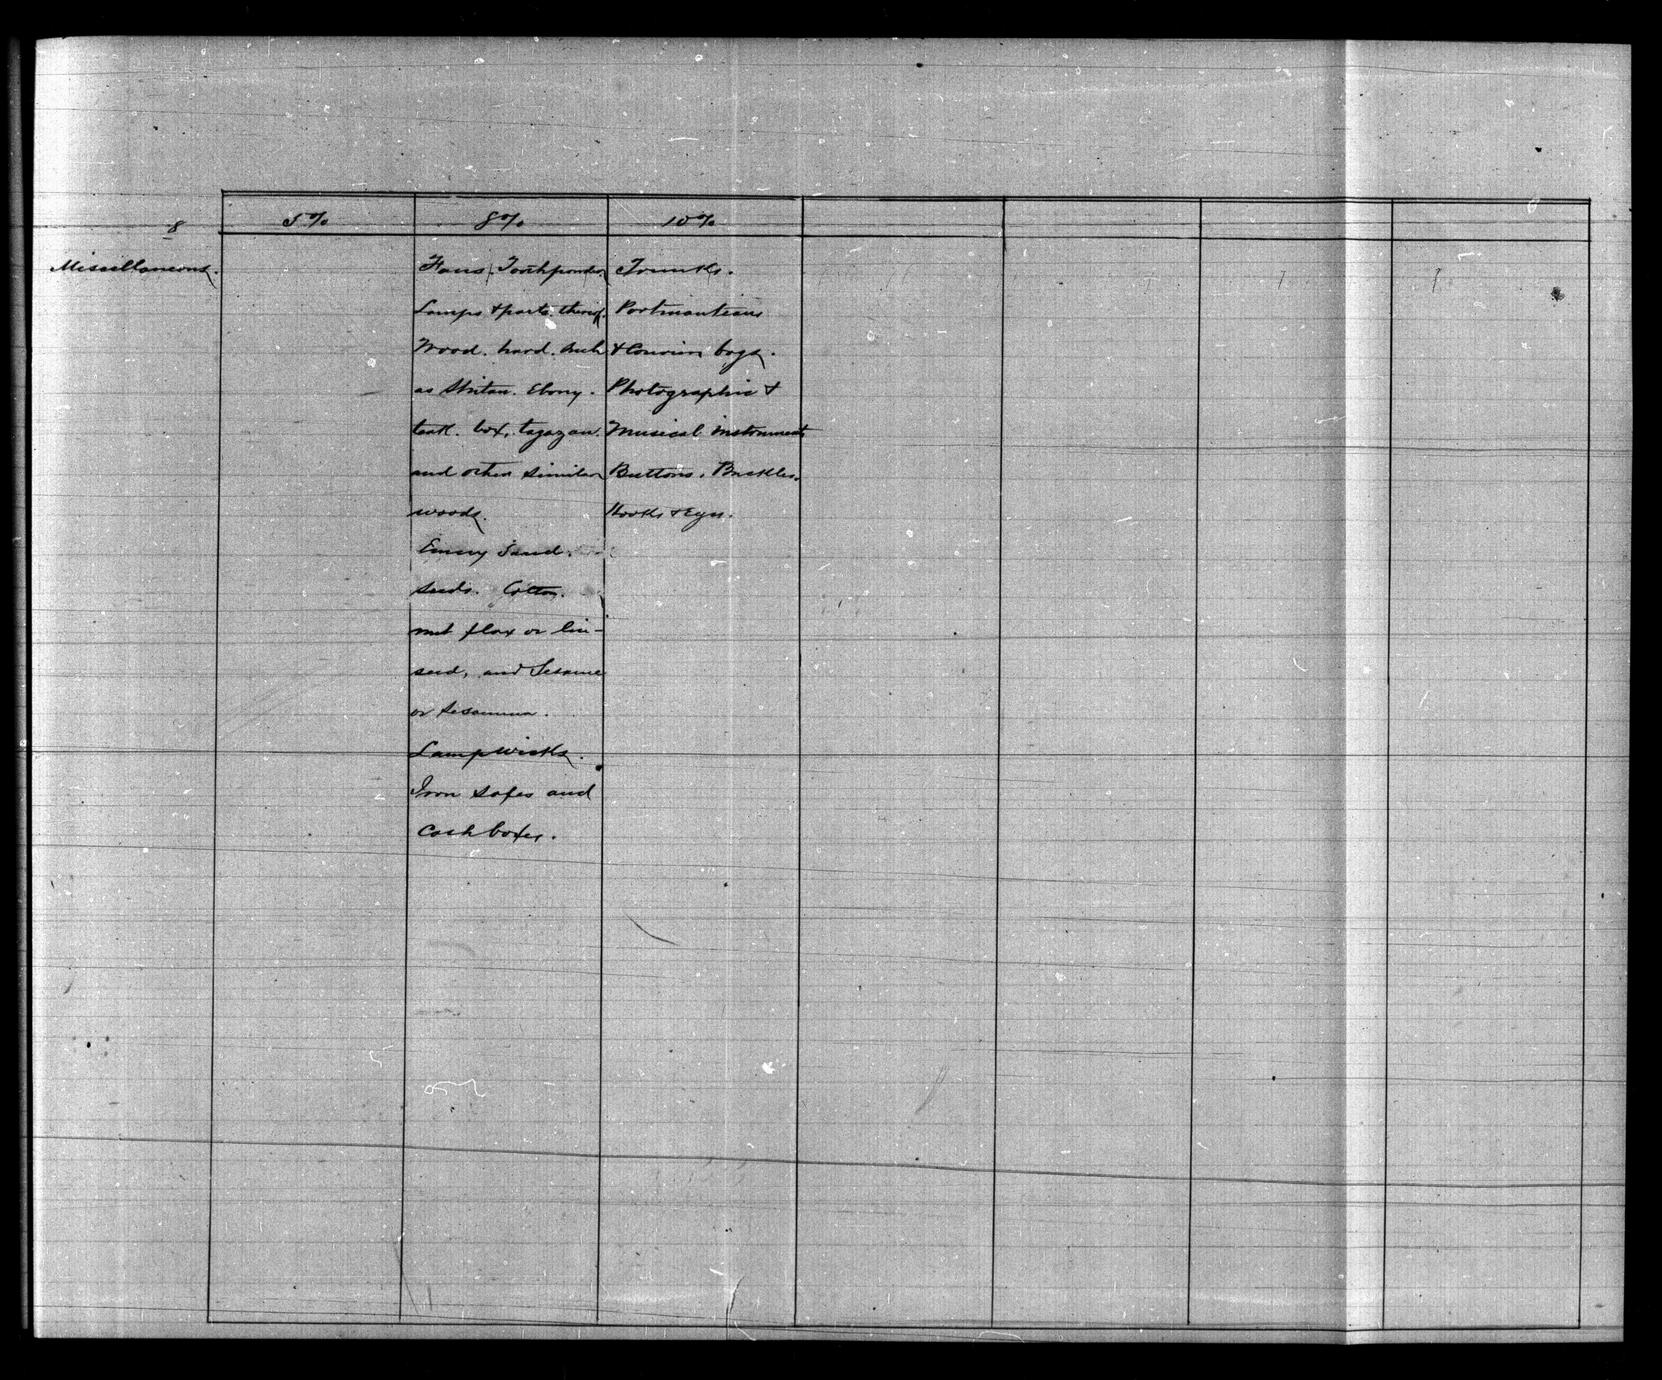 8
5% 8% 10%
Miscellaneous.
Fans. Toothpowder
Lamps & parts thereof.
Wood. hard. such
as Shitan. Ebony.
teak. box, tagayan.
and other similar
woods.
Emery Sand.
Seeds. Cotton.
nut flax or lin-
seed, and Sesame
or Sesamum.
Lampwicks.
Iron Safes and
Cash boxes.
Trunks.
Portmanteaus
& Courier bags.
Photographic &
Musical instruments
Buttons. Buckles.
Hooks & Eyes.